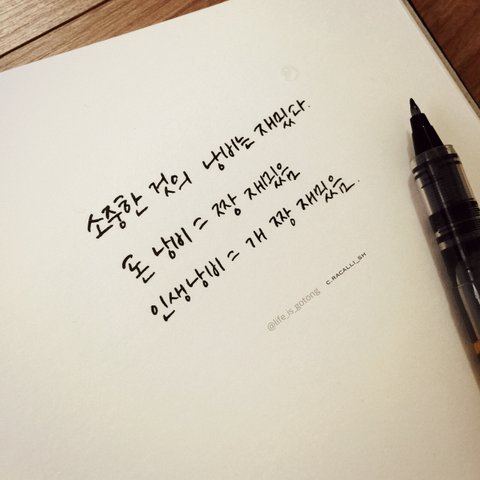 소중한 것의 낭비는 재밌다.
돈 낭비 = 짱 재밌음
인생낭비 = 개 짱 재밌음.
@life_is_gotong
C.RACALLI_SH